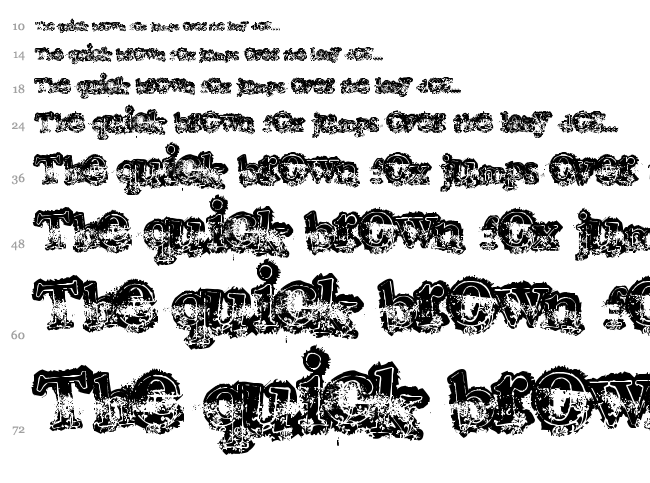 10 The quick brown fox jumps over the lazy dog...
14 The quick brown fox jumps over the lazy dog...
18 The quick brown fox jumps over the lazy dog...
24 The quick brown fox jumps over the lazy dog...
36 The quick brown fox jumps over
48 The quick brown fox jum
60 The quick brown fo
72 The quick brow